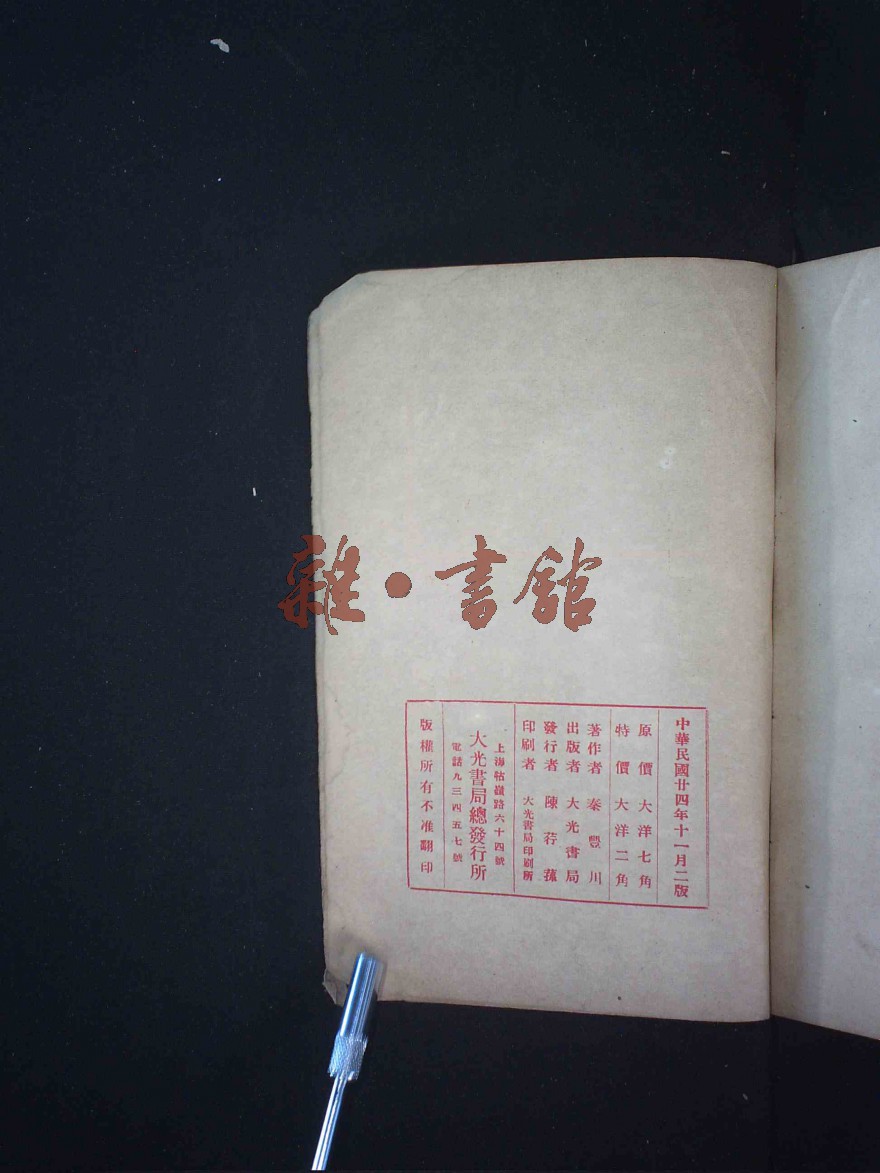 雜·書館
中華民國廿四年十一月二版
原價大洋七角
特價大洋二角
著作者 秦豐川
出版者 大光書局
發行者 陳荇蓀
印刷者 大光書局印刷所
上海牯嶺路六十四號
大光書局總發行所
電話九三四五七號
版權所有不准翻印